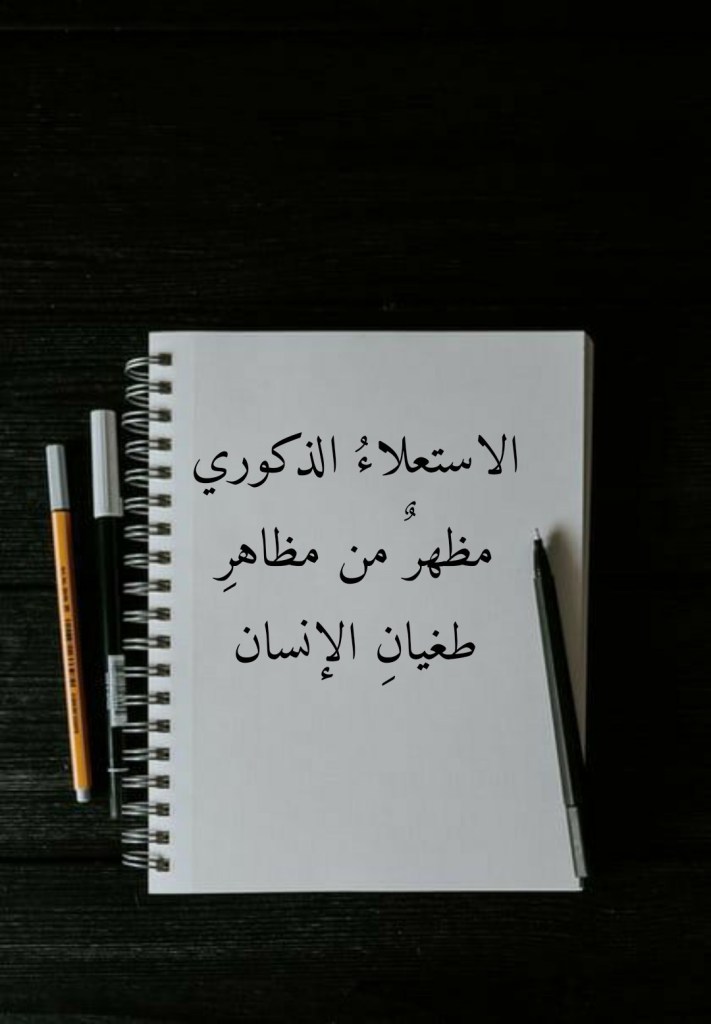 الاستعلاءُ الذكوري
مظهرٌ من مظاهرِ
طغيانِ الإنسان